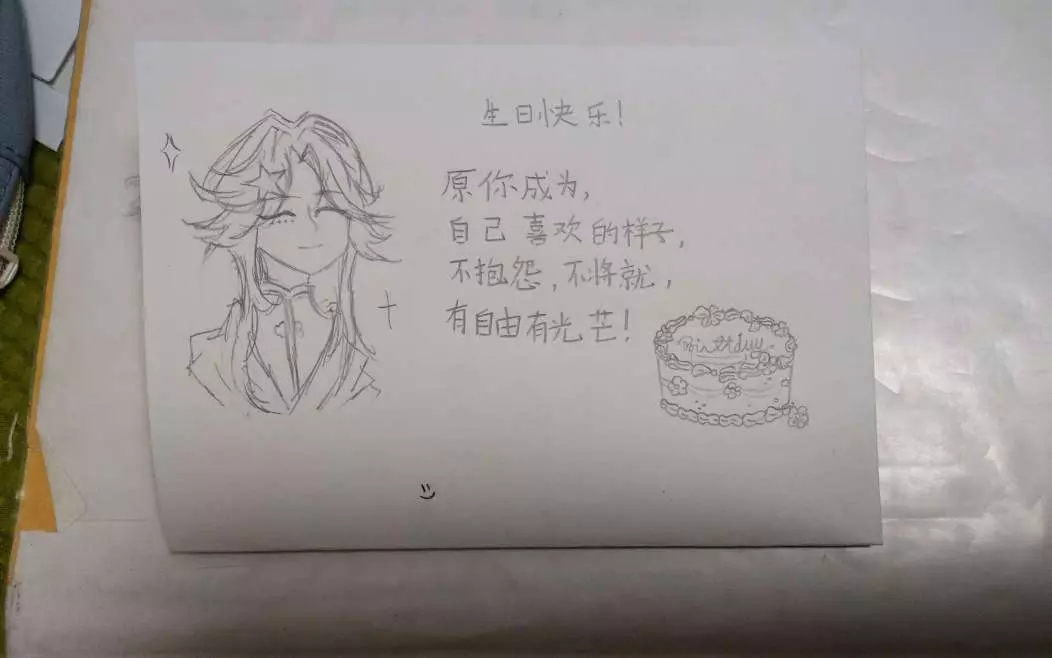 生日快乐！
原你成为，
自己喜欢的样子，
不抱怨，不将就，
有自由有光芒！